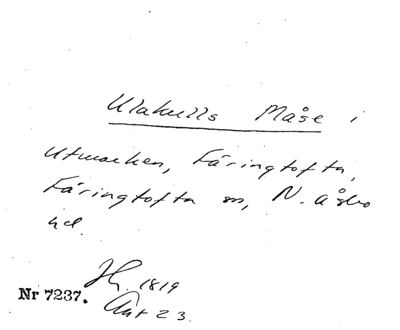 Ulakulls Måse i
utmarken, Färingtofta,
Färingtofta sn, N. Åsbo
hd.
1819
Nr 7237. Akt 23.